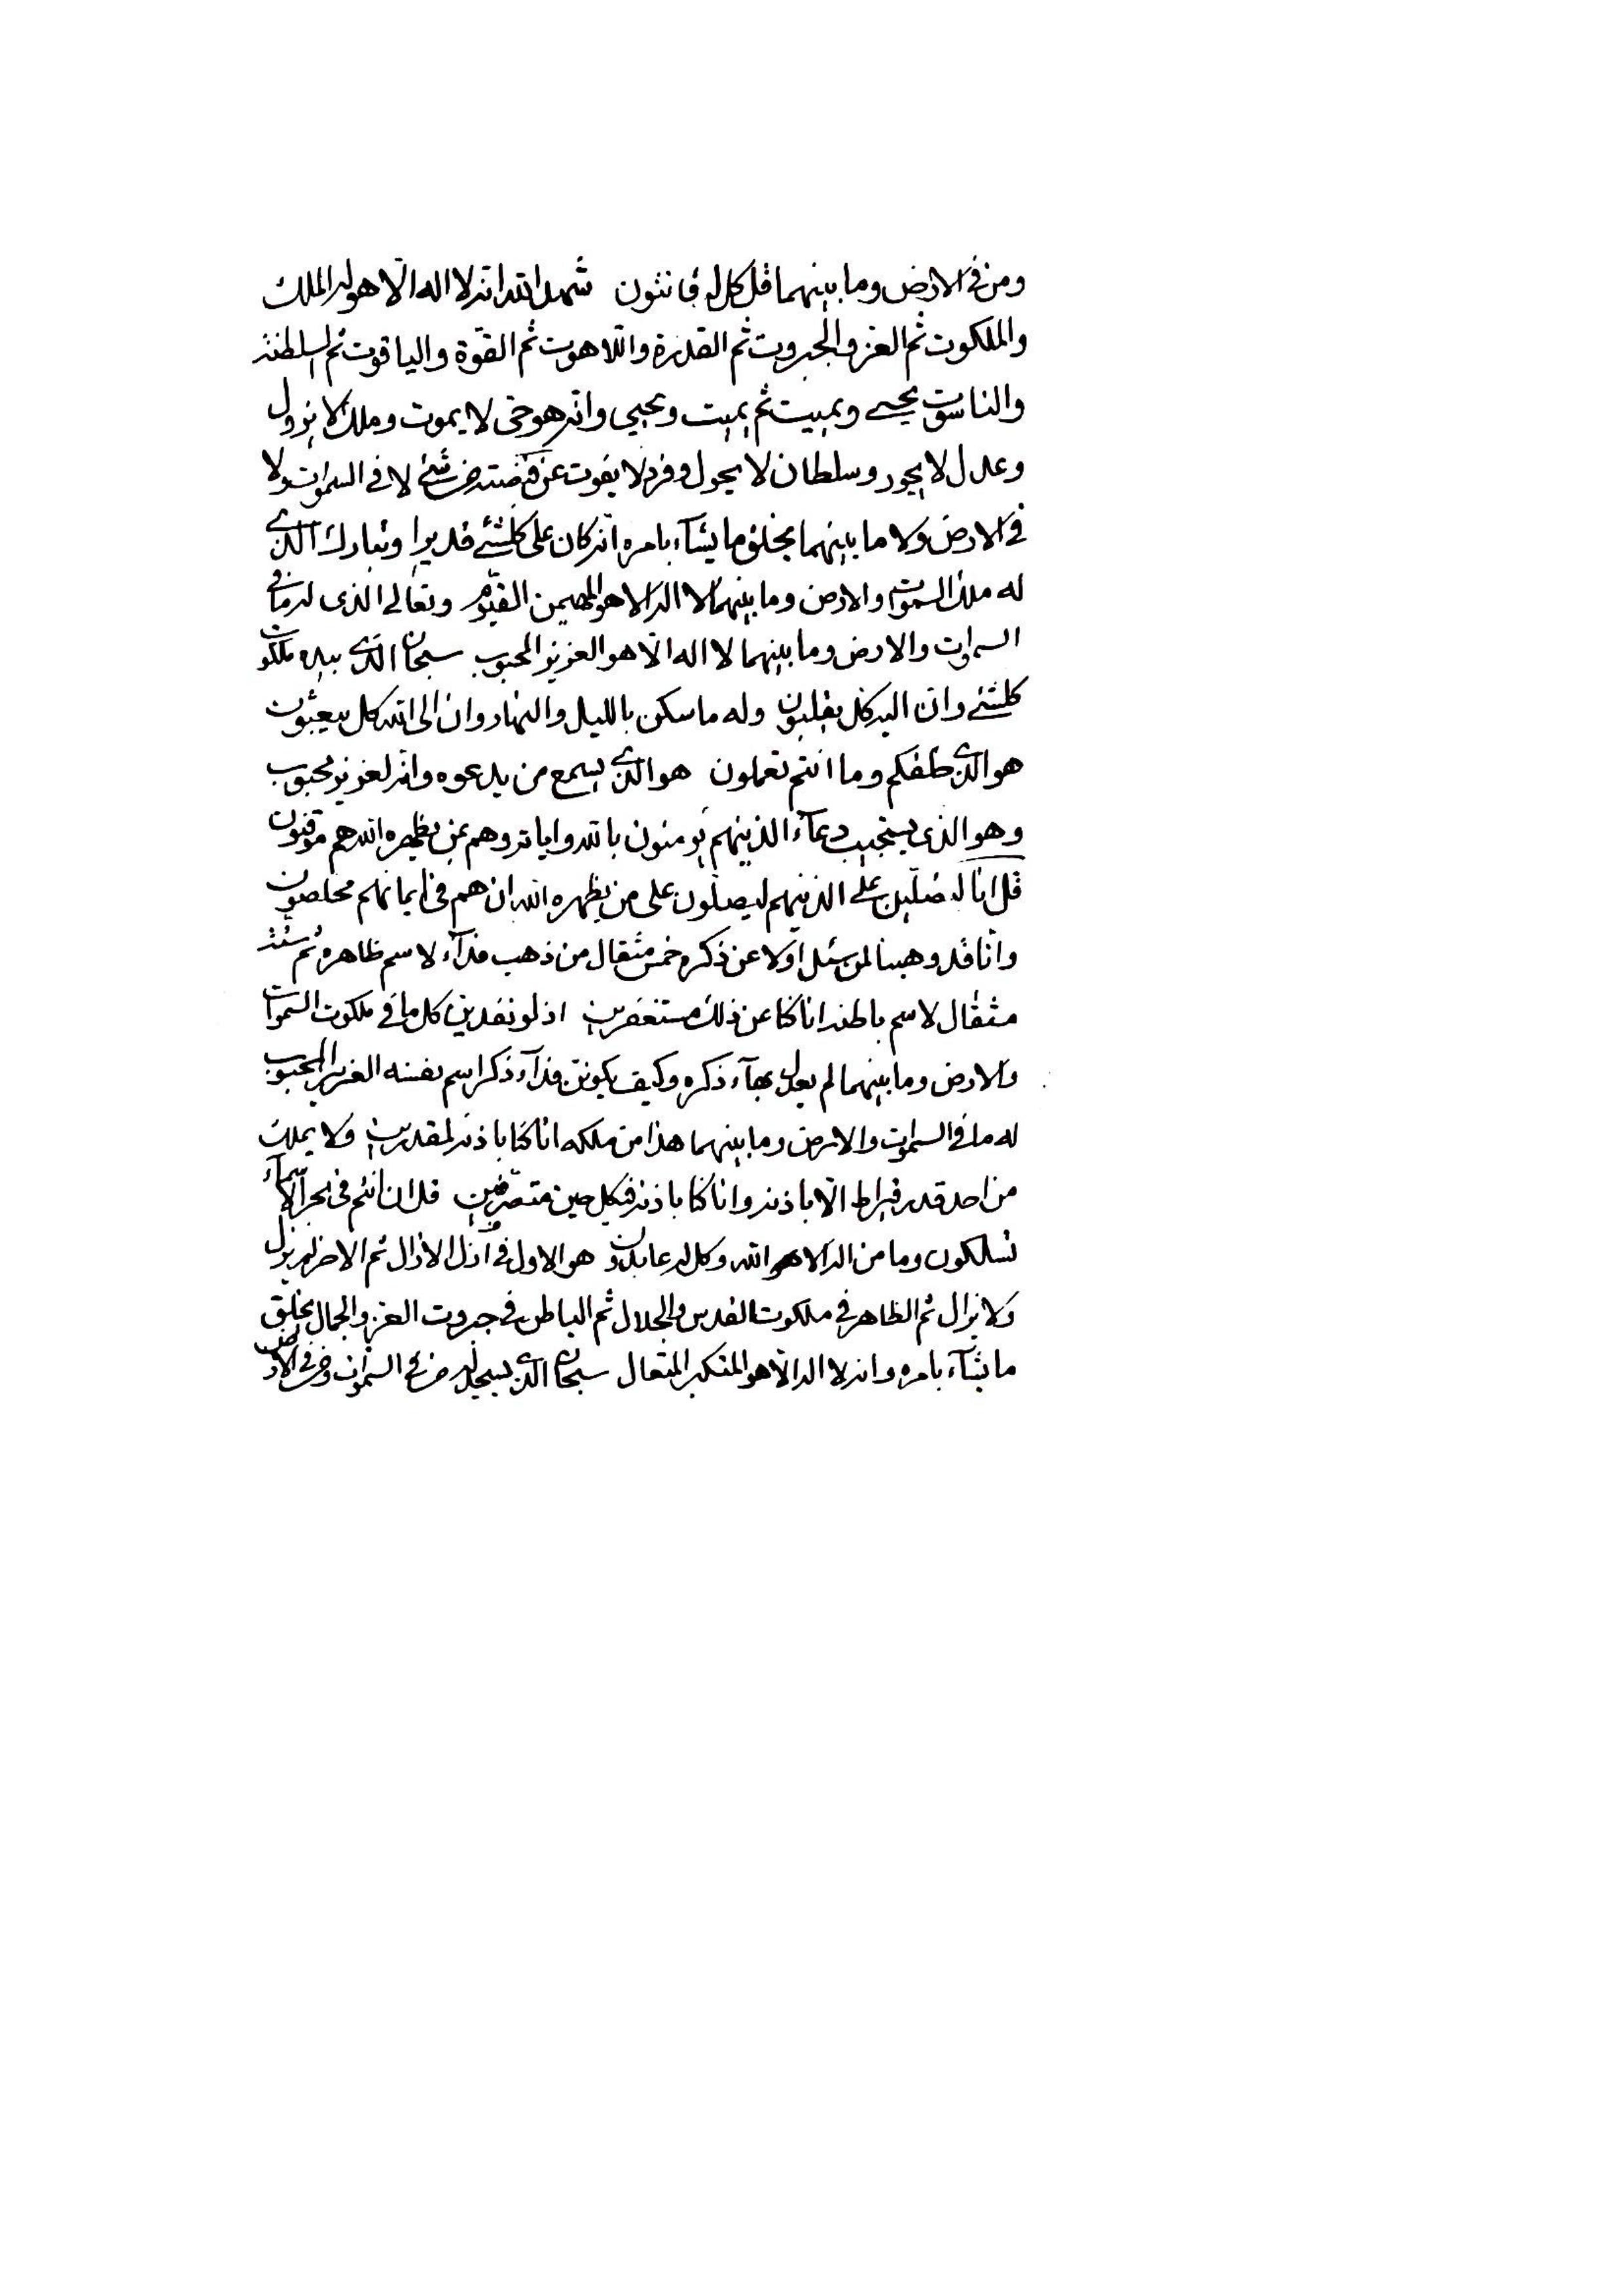 ومن في الارض وما بينهما قل كل له قانتون شهد الله انه لا اله الا هو له الملك
والملكوت ثم العز والجبروت ثم القدرة واللاهوت ثم القوة والياقوت ثم السلطنة
والناسوت يحيى ويميت ثم يميت ويحيى وانه هو حى لا يموت وملك لا يزول
وعدل لا يجور وسلطان لا يحول وفرد لا يفوت عن قبضته من شئ لا في السموات ولا
في الارض ولا ما بينهما يخلق ما يشآء بامره انه كان على كلشئ قديرا وتبارك الذى
له ملك السموات والارض وما بينهما لا اله الا هو المهيمن القيوم وتعالى الذى له ما فى
السموات والارض وما بينهما لا اله الا هو العزيز المحبوب سبحان الذى بيده ملكوت
كلشئ وان اليه كل يقلبون وله ما سكن بالليل والنهار وان الى الله كل يبعثون
هو الذى خلقكم وما انتم تعملون هو الذى يسمع من يدعوه وانه لعزيز محبوب
وهو الذى يستجيب دعآء الذينهم يؤمنون بالله واياته وهم بمن يظهره الله هم موقنون
قل انا لنصلين على الذينهم ليصلون على من يظهره الله ان هم في ايمانهم مخلصون
وانا قد وهبنا لمن سئل اولا عن ذكره خمس مثقال من ذهب فدآء لاسم ظاهره ثم ستة
مثقال لاسم باطنه انا كنا عن ذلك مستغفرين اذ لو نفدين كل ما في ملكوت السموات
والارض وما بينهما لم يعدل بهآء ذكره وكيف يكونن فدآء ذكر اسم نفسه العزيز المحبوب
له ما في السموات والارض وما بينهما هذا من ملكه انا كنا باذنه لمقدرين ولا يملك
من احد قدر قيراط الا باذنه وانا كنا باذنه فيكل حين متصرفين قل ان انتم في بحر الاسمآء
تسلكون وما من اله الا هو الله وكل له عابدون هو الاول في ازل الازال ثم الاخر لم يزل
ولا يزال ثم الظاهر في ملكوت القدس والجلال ثم الباطن في جبروت العز والجمال يخلق
ما يشآء بامره وانه لا اله الا هو المتكبر المتعال سبحان الذى يسجد له من في السموات ومن في الارض